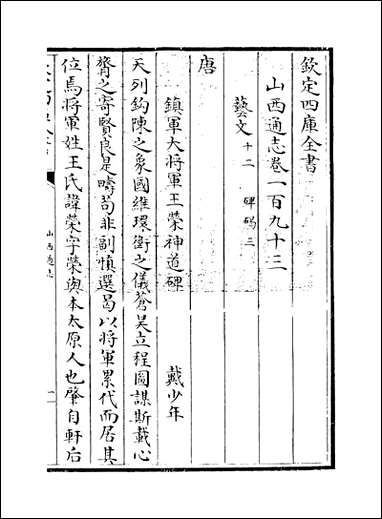 欽定四庫全書
山西通志卷一百九十二
藝文十二 碑碣三
唐
鎮軍大將軍王榮神道碑 戴少平
天列鈎陳之象國維環衛之儀蒼昊立程圖謀斯載心
膂之寄賢良是疇苟非副慎選曷以將軍累代而居其
位焉將軍姓王氏諱榮字榮輿本太原人也肇自軒后
山西通志